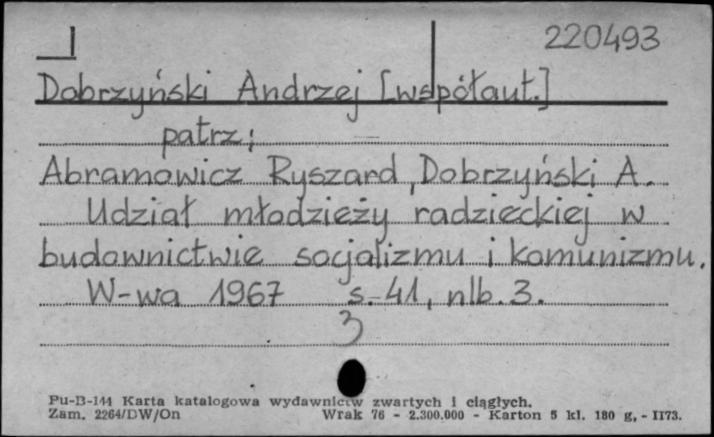 220493
Dobrzyński Andrzej [współaut.]
patrz:
Abramowicz Ryszard, Dobrzyński A.
Udział młodzieży radzieckiej w
budownictwie socjalizmu i komunizmu.
W-wa 1967 s. 41, nlb. 3.
3
Pu-B-144 Karta katalogowa wydawnictw zwartych i ciągłych.
Zam. 2264/DW/On Wrak 76 - 2.300.000 - Karton 5 kl. 180 g, - II73.